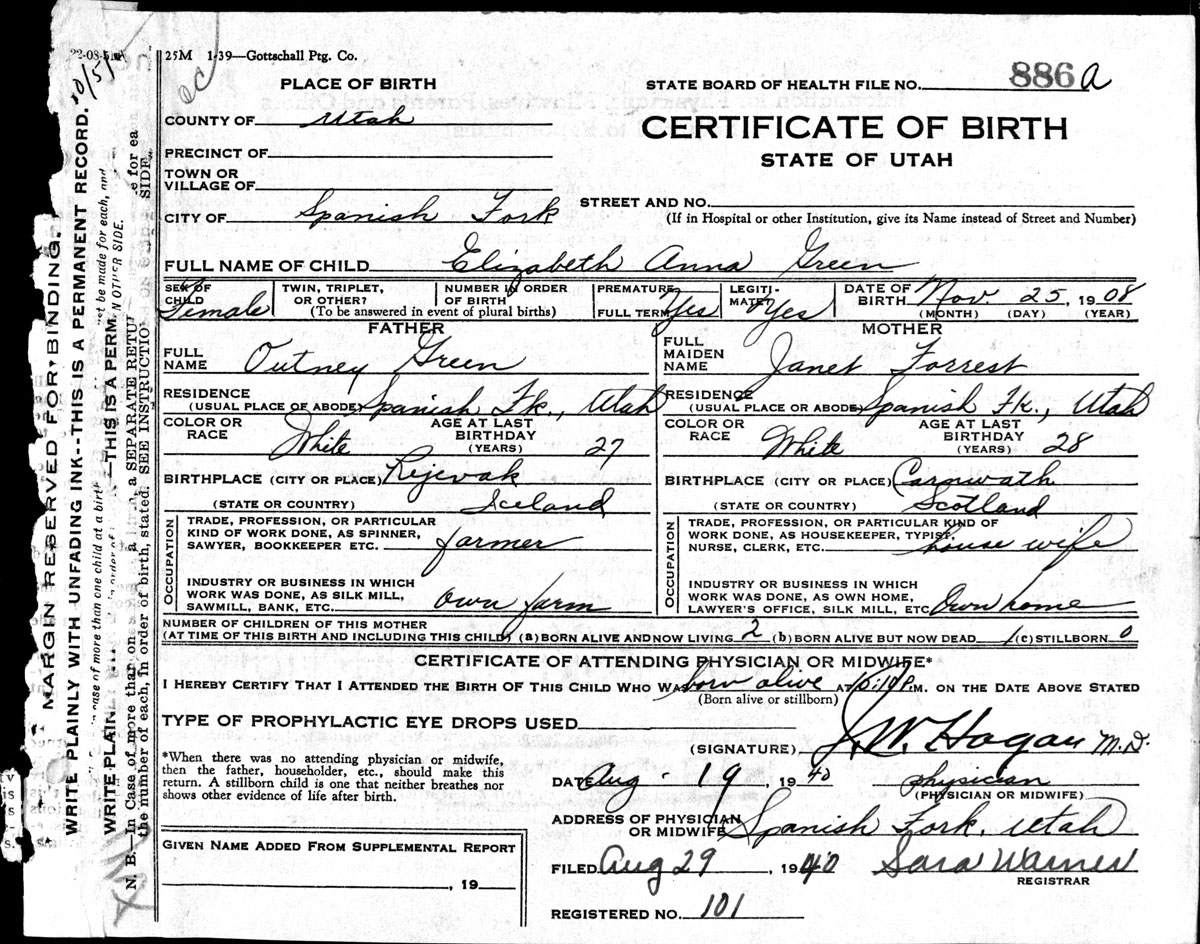 22-08-51A
25M 1-39—Gottschall Ptg. Co.
PLACE OF BIRTH
STATE BOARD OF HEALTH FILE NO. 886 a
COUNTY OF Utah
CERTIFICATE OF BIRTH
PRECINCT OF
STATE OF UTAH
TOWN OR
VILLAGE OF
STREET AND NO.
CITY OF Spanish Fork
(If in Hospital or other Institution, give its Name instead of Street and Number)
FULL NAME OF CHILD Elizabeth Anna Green
SEX OF CHILD Female
TWIN, TRIPLET, OR OTHER?
NUMBER IN ORDER OF BIRTH
(To be answered in event of plural births)
PREMATURE
FULL TERM Yes
LEGITIMATE? Yes
DATE OF BIRTH Nov. 25, 1908
(MONTH) (DAY) (YEAR)
FATHER
FULL NAME Outney Green
RESIDENCE
(USUAL PLACE OF ABODE) Spanish Fk., Utah
COLOR OR RACE White
AGE AT LAST BIRTHDAY (YEARS) 27
BIRTHPLACE (CITY OR PLACE) Rejevak
(STATE OR COUNTRY) Iceland
OCCUPATION
TRADE, PROFESSION, OR PARTICULAR
KIND OF WORK DONE, AS SPINNER,
SAWYER, BOOKKEEPER ETC. farmer
INDUSTRY OR BUSINESS IN WHICH
WORK WAS DONE, AS SILK MILL,
SAWMILL, BANK, ETC. Own farm
MOTHER
FULL MAIDEN NAME Janet Forrest
RESIDENCE
(USUAL PLACE OR ABODE) Spanish Fk., Utah
COLOR OR RACE White
AGE AT LAST BIRTHDAY (YEARS) 28
BIRTHPLACE (CITY OR PLACE) Carnwath
(STATE OR COUNTRY) Scotland
OCCUPATION
TRADE, PROFESSION, OR PARTICULAR KIND OF
WORK DONE, AS HOUSEKEEPER, TYPIST,
NURSE, CLERK, ETC. house wife
INDUSTRY OR BUSINESS IN WHICH
WORK WAS DONE, AS OWN HOME,
LAWYER'S OFFICE, SILK MILL, ETC. Own home
NUMBER OF CHILDREN OF THIS MOTHER
(AT TIME OF THIS BIRTH AND INCLUDING THIS CHILD) (a) BORN ALIVE AND NOW LIVING 2 (b) BORN ALIVE BUT NOW DEAD 1 (c) STILLBORN 0
CERTIFICATE OF ATTENDING PHYSICIAN OR MIDWIFE*
I HEREBY CERTIFY THAT I ATTENDED THE BIRTH OF THIS CHILD WHO WAS born alive AT 10:10 P.M. ON THE DATE ABOVE STATED
(Born alive or stillborn)
TYPE OF PROPHYLACTIC EYE DROPS USED
(SIGNATURE) J. W. Hagan M.D.
*When there was no attending physician or midwife,
then the father, householder, etc., should make this
return. A stillborn child is one that neither breathes nor
shows other evidence of life after birth.
DATE Aug. 19, 1940 physician
(PHYSICIAN OR MIDWIFE)
ADDRESS OF PHYSICIAN
OR MIDWIFE Spanish Fork, Utah
GIVEN NAME ADDED FROM SUPPLEMENTAL REPORT
, 19
FILED Aug 29, 1940 Sara Warner
REGISTRAR
REGISTERED NO. 101
MARGIN RESERVED FOR BINDING.
WRITE PLAINLY WITH UNFADING INK--THIS IS A PERMANENT RECORD.
In case of more than one child at a birth
t be made for each, and
WRITE PLAIN
—THIS IS A PERM
N OTHER SIDE.
N. B.—In Case of more than on
a SEPARATE RETU
e for ea
the number of each, in order of birth, stated. SEE INSTRUCTIO
SIDE.